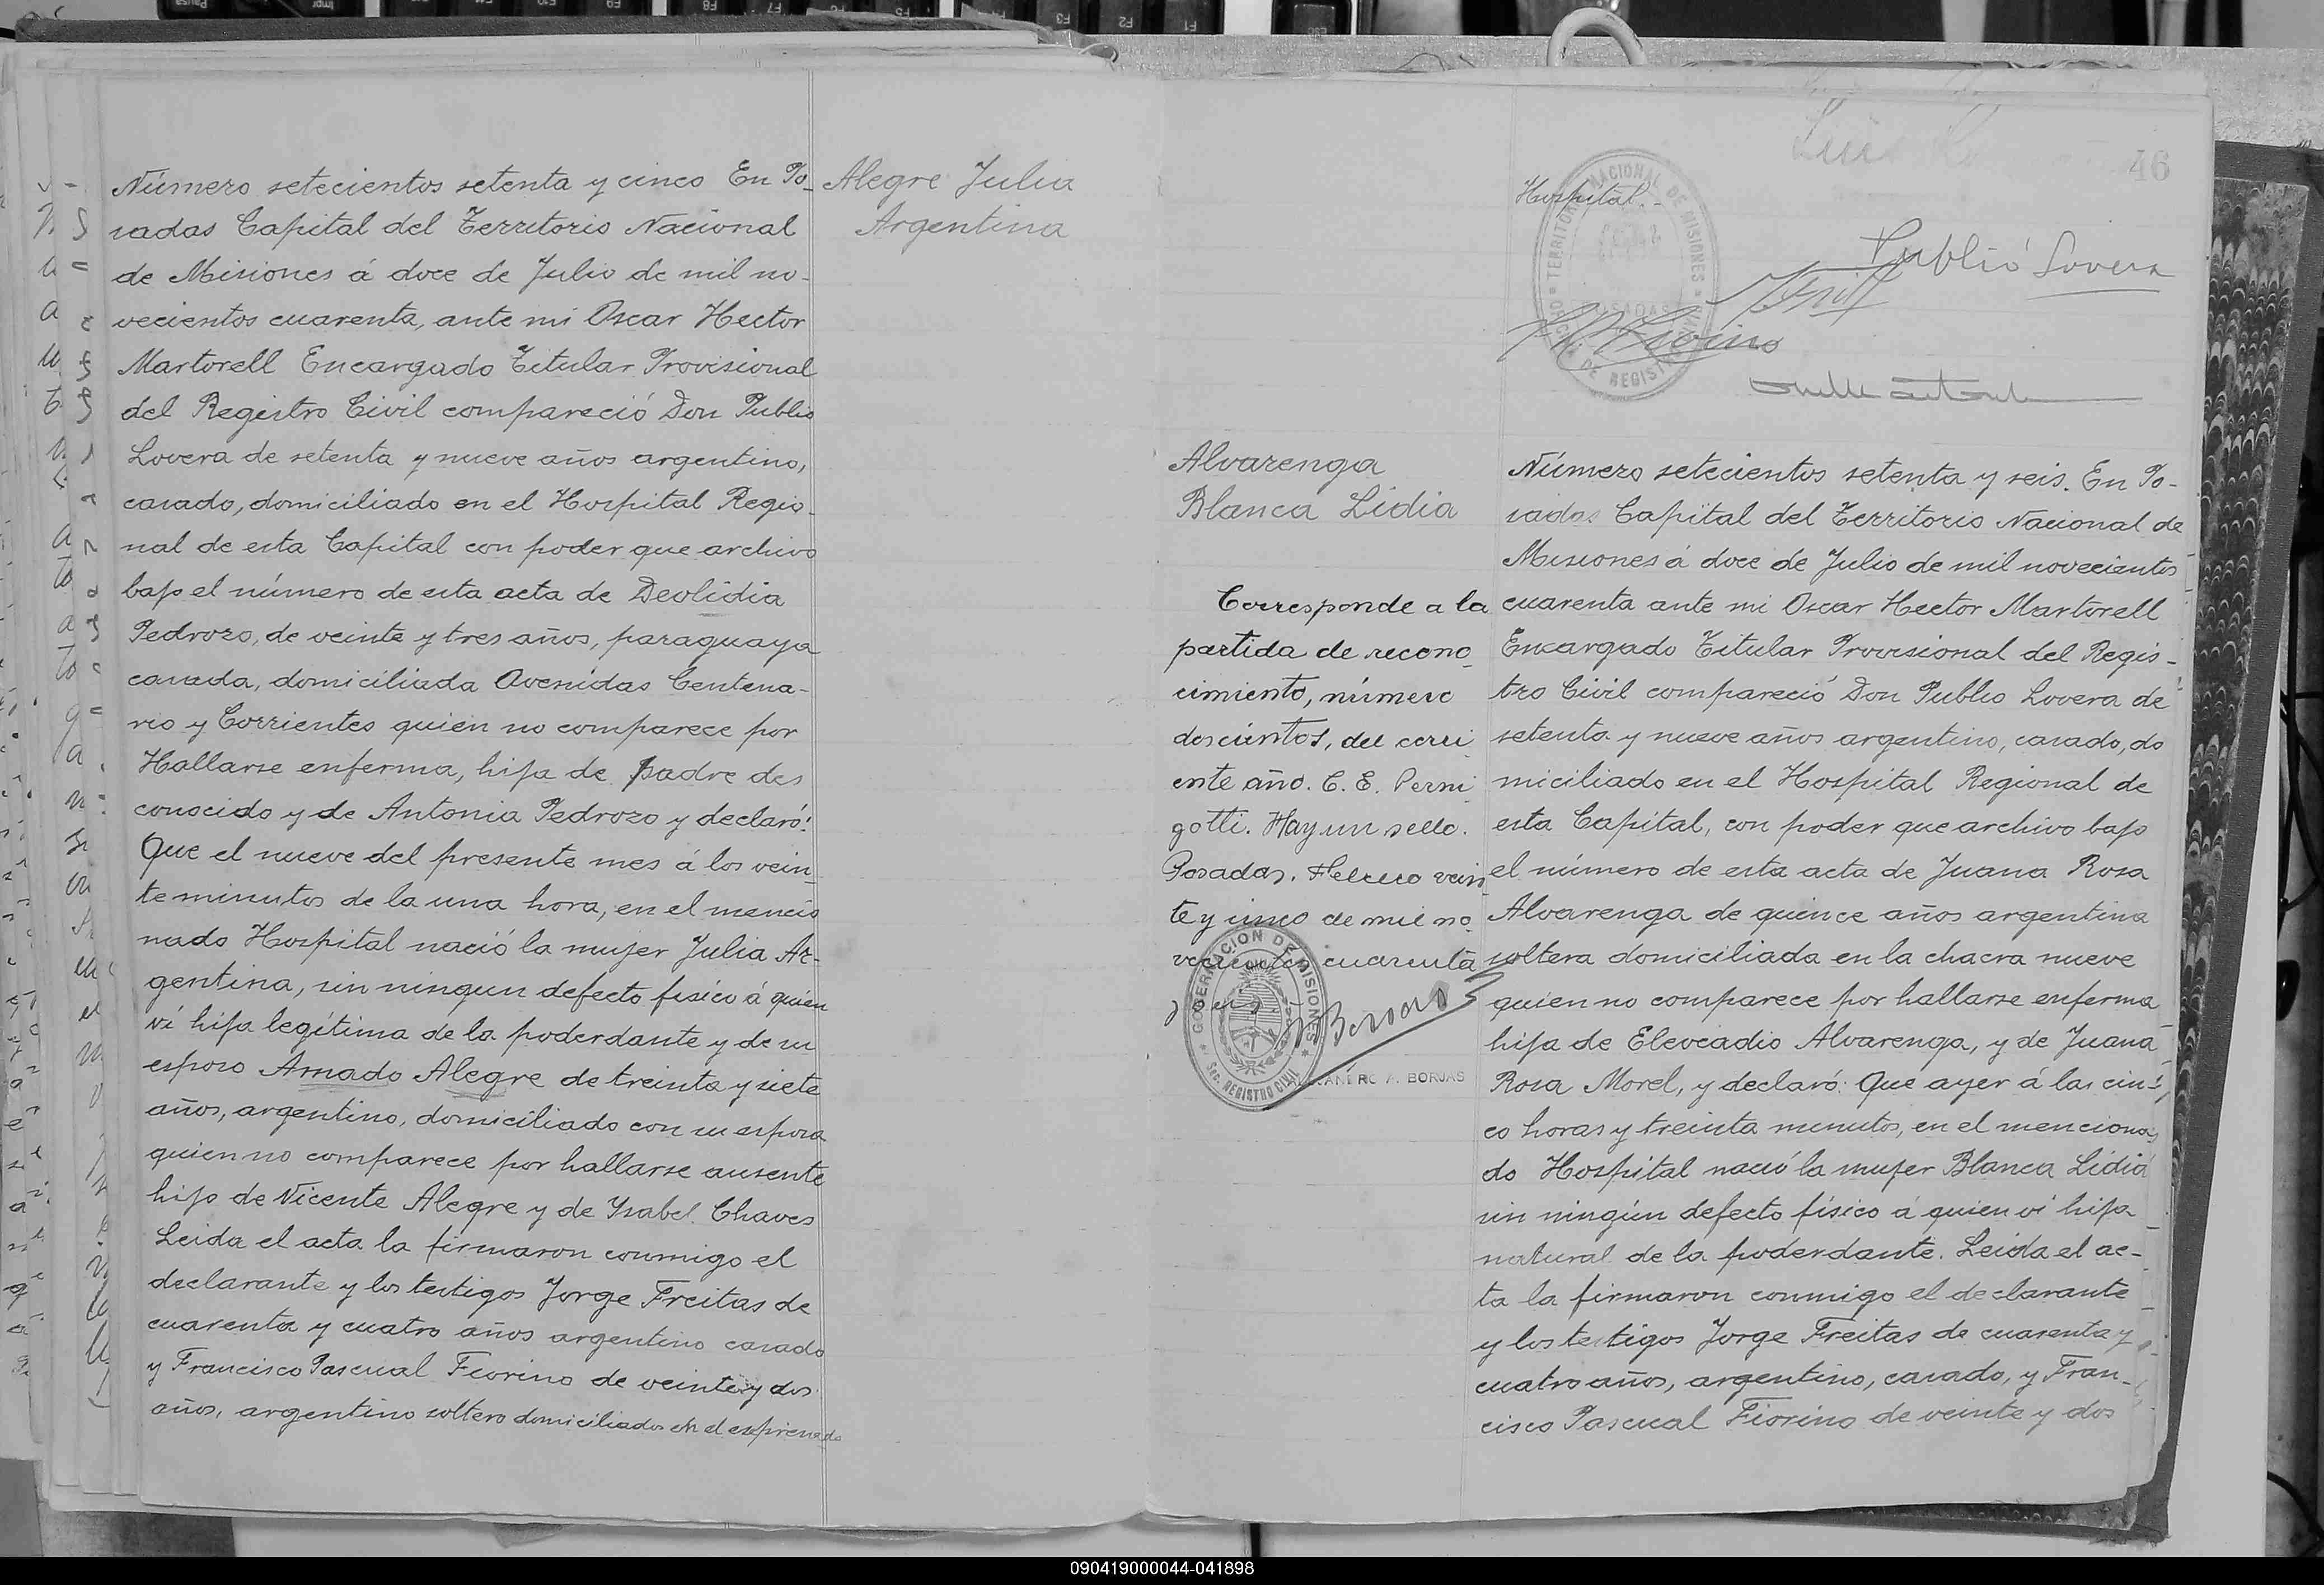 Número setecientos setenta y cinco En Po-
sadas Capital del Territorio Nacional
de Misiones á doce de Julio de mil no-
vecientos cuarenta, ante mi Oscar Hector
Martorell Encargado Titular Provisional
del Registro Civil compareció Don Publio
Lovera de setenta y nueve años argentino,
casado, domiciliado en el Hospital Regio-
nal de esta Capital con poder que archivo
bajo el número de esta acta de Deolidia
Pedrozo, de veinte y tres años, paraguaya
casada, domiciliada Avenidas Centena-
rio y Corrientes quien no comparece por
Hallarse enferma, hija de padre des
conocido y de Antonia Pedrozo y declaró:
Que el nueve del presente mes á los vein-
te minutos de la una hora, en el mencio
nado Hospital nació la mujer Julia Ar-
gentina, sin ningun defecto fisico á quien
ví hija legítima de la poderdante y de su
esposo Amado Alegre de treinta y siete
años, argentino, domiciliado con su esposa
quien no comparece por hallarse ausente
hijo de Vicente Alegre y de Ysabel Chaves
Leida el acta la firmaron conmigo el
declarante y los testigos Jorge Freitas de
cuarenta y cuatro años argentino casado
y Francisco Pascual Fiorino de veinte y dos
años, argentino soltero domiciliados en el expresado
Alegre Julia
Argentina
46
Hospital.-
TERRITORIO NACIONAL DE MISIONES
POSADAS
Publio Lovera
Fiorino
Alvarenga
Blanca Lidia
Corresponde a la
partida de recono-
cimiento, número
doscientos, del corri
ente año. C. E. Perni
gotti. Hay un sello.
Posadas. Febrero vein
te y cinco de mil no-
vecientos cuarenta
GOBERNACION DE MISIONES
SEC. REGISTRO CIVIL
A. BORJAS
Número setecientos setenta y seis. En Po-
sadas Capital del Territorio Nacional de
Misiones á doce de Julio de mil novecientos
cuarenta ante mi Oscar Hector Martorell
Encargado Titular Provisional del Regis-
tro Civil compareció Don Publio Lovera de
setenta y nueve años argentino, casado, do
miciliado en el Hospital Regional de
esta Capital, con poder que archivo bajo
el número de esta acta de Juana Rosa
Alvarenga de quince años argentina
soltera domiciliada en la chacra nueve
quien no comparece por hallarse enferma
hija de Eleveadio Alvarenga, y de Juana
Rosa Morel, y declaró: Que ayer á las cin-
co horas y treinta minutos, en el menciona-
do Hospital nació la mujer Blanca Lidia
sin ningún defecto físico á quien ví hija
natural de la poderdante. Leida el ac-
ta la firmaron conmigo el declarante
y los testigos Jorge Freitas de cuarenta y
cuatro años, argentino, casado, y Fran-
cisco Pascual Fiorino de veinte y dos
090419000044-041898